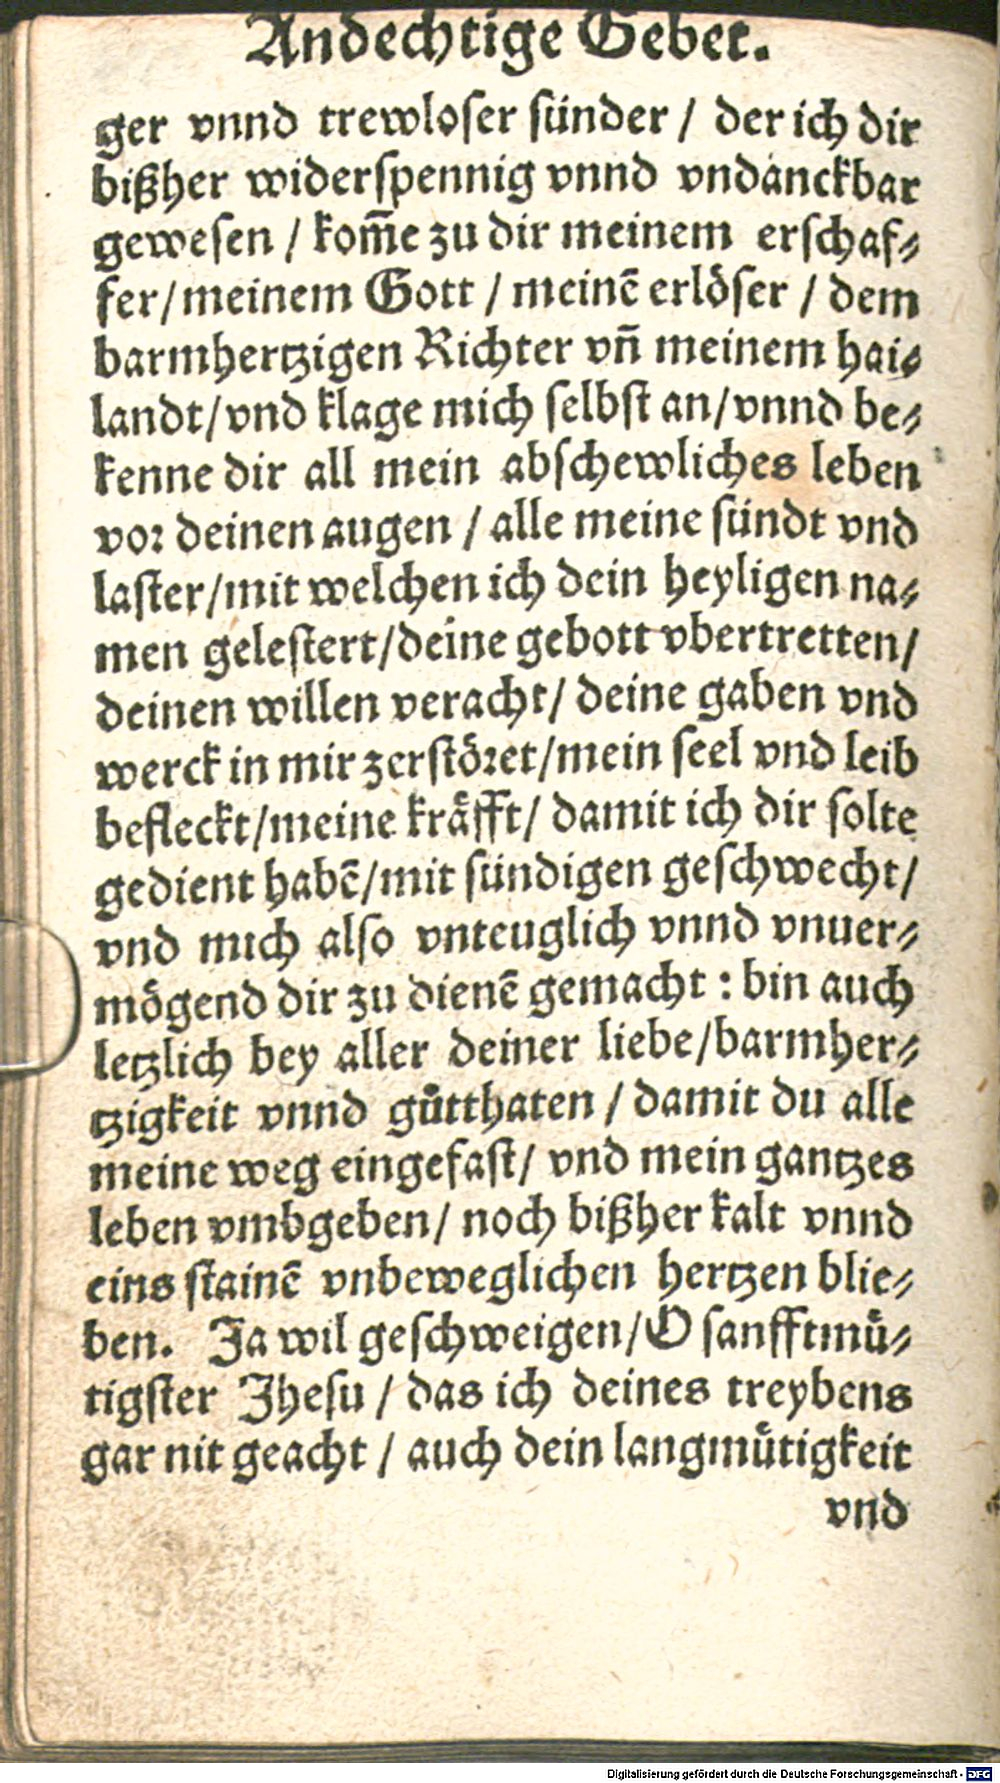 Andechtige Gebet.
ger vnnd trewloser sünder / der ich dir
bißher widerspennig vnnd vndanckbar
gewesen / kom̄e zu dir meinem erschaf⸗
fer/meinem Gott / meinē erlöser / dem
barmhertzigen Richter vn̄ meinem hai⸗
landt/vnd klage mich selbst an/vnnd be⸗
kenne dir all mein abschewliches leben
vor deinen augen / alle meine sündt vnd
laster/mit welchen ich dein heyligen na⸗
men gelestert/deine gebott vbertretten/
deinen willen veracht/ deine gaben vnd
werck in mir zerstöret/mein seel vnd leib
befleckt/meine kräfft/ damit ich dir solte
gedient habē/mit sündigen geschwecht/
vnd mich also vnteuglich vnnd vnuer⸗
mögend dir zu dienē gemacht : bin auch
letzlich bey aller deiner liebe/barmher⸗
tzigkeit vnnd gůtthaten / damit du alle
meine weg eingefast/ vnd mein gantzes
leben vmbgeben/ noch bißher kalt vnnd
eins stainē vnbeweglichen hertzen blie⸗
ben. Ja wil geschweigen/O sanfftmů⸗
tigster Jhesu / das ich deines treybens
gar nit geacht / auch dein langmůtigkeit
vnd
Digitalisierung gefördert durch die Deutsche Forschungsgemeinschaft - DFG